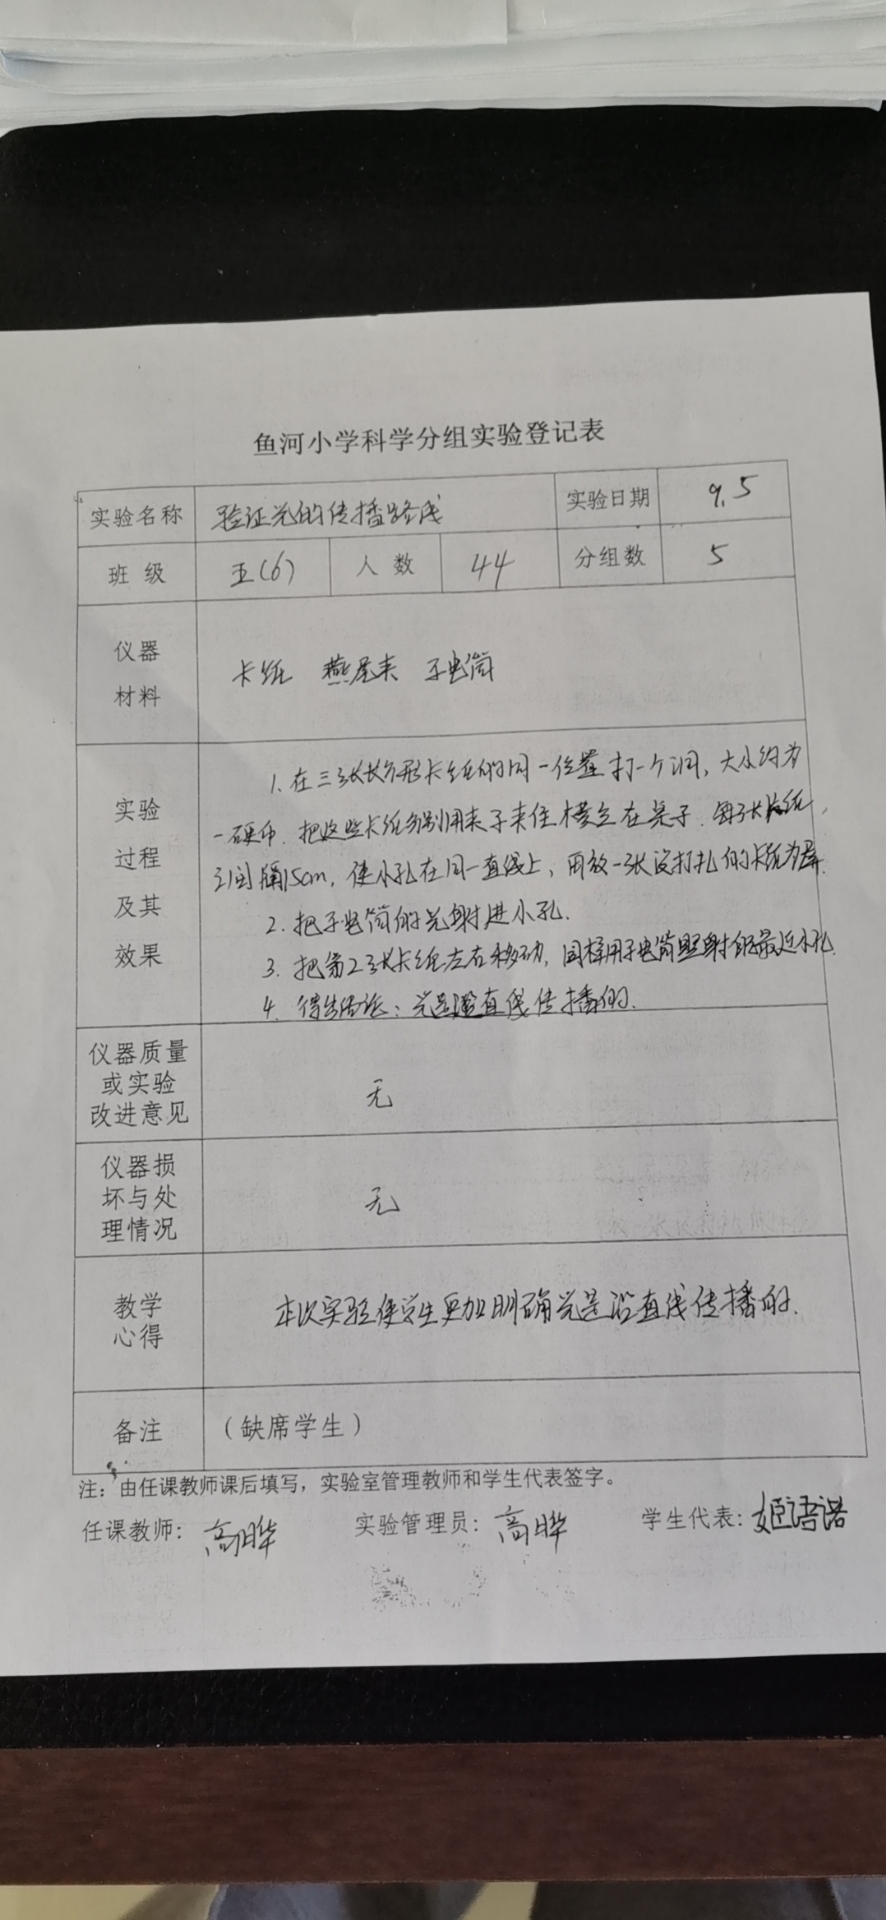 鱼河小学科学分组实验登记表
实验名称 验证光的传播路线 实验日期 9.5
班级 五(6) 人数 44 分组数 5
仪器
材料
卡纸 燕尾夹 手电筒
实验
过程
及其
效果
1. 在三张长方形卡纸的同一位置打一个洞, 大小约为
一硬币. 把这些卡纸分别用夹子夹住横立在桌子. 每张卡纸
之间隔15cm, 使小孔在同一直线上, 再放一张没打孔的卡纸为屏.
2. 把手电筒的光射进小孔.
3. 把第2张卡纸左右移动, 同样用手电筒照射最近小孔.
4. 得出结论: 光是沿直线传播的.
仪器质量
或实验
改进意见
无
仪器损
坏与处
理情况
无
教学
心得
本次实验使学生更加明确光是沿直线传播的.
备注 (缺席学生)
注: 由任课教师课后填写, 实验室管理教师和学生代表签字。
任课教师: 高晔 实验管理员: 高晔 学生代表: 姬语诺